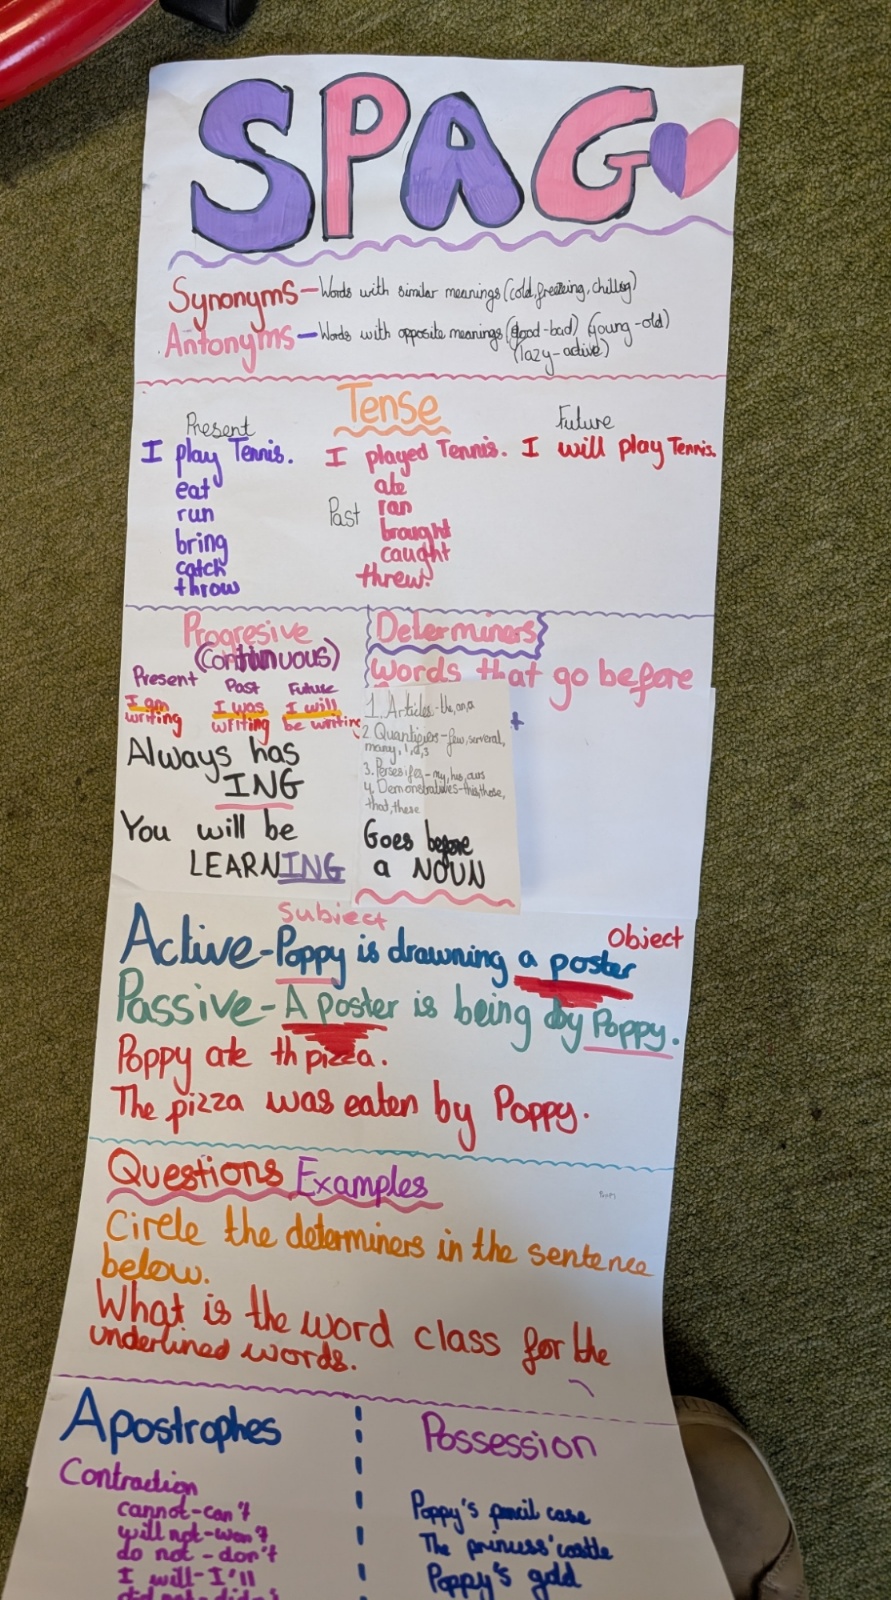 SPAG
Synonyms - Words with similar meanings (cold, freezing, chilling)
Antonyms - Words with opposite meanings (good-bad) (young-old)
(lazy-active)
Tense
Present
I play Tennis.
eat
run
bring
catch
throw
Past
I played Tennis.
ate
ran
brought
caught
threw.
Future
I will play Tennis.
Progresive
(Continuous)
Present
I am
writing
Past
I was
writing
Future
I will
be writing
Always has
ING
You will be
LEARNING
Determiners
Words that go before
1. Articles - the, an, a
2. Quantifiers - few, serveral,
many, 1, 2, 3
3. - my, his, ours
4. Demonstratives - this, those,
that, these
Goes before
a NOUN
Subject
Object
Active - Poppy is drawning a poster
Passive - A poster is being by Poppy.
Poppy ate th pizza.
The pizza was eaten by Poppy.
Questions Examples
Circle the determiners in the sentence
below.
What is the word class for the
underlined words.
Apostrophes
Contraction
cannot - can't
will not - won't
do not - don't
I will - I'll
Possession
Poppy's pencil case
The princess' castle
Poppy's gold